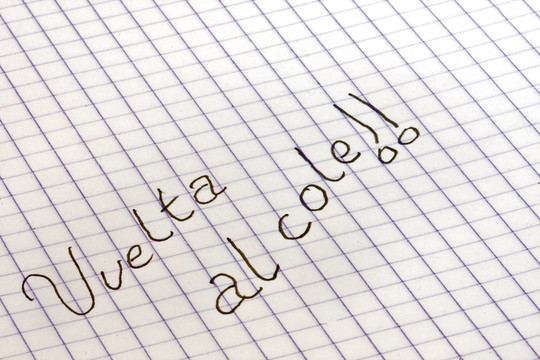 Vuelta
al cole!!